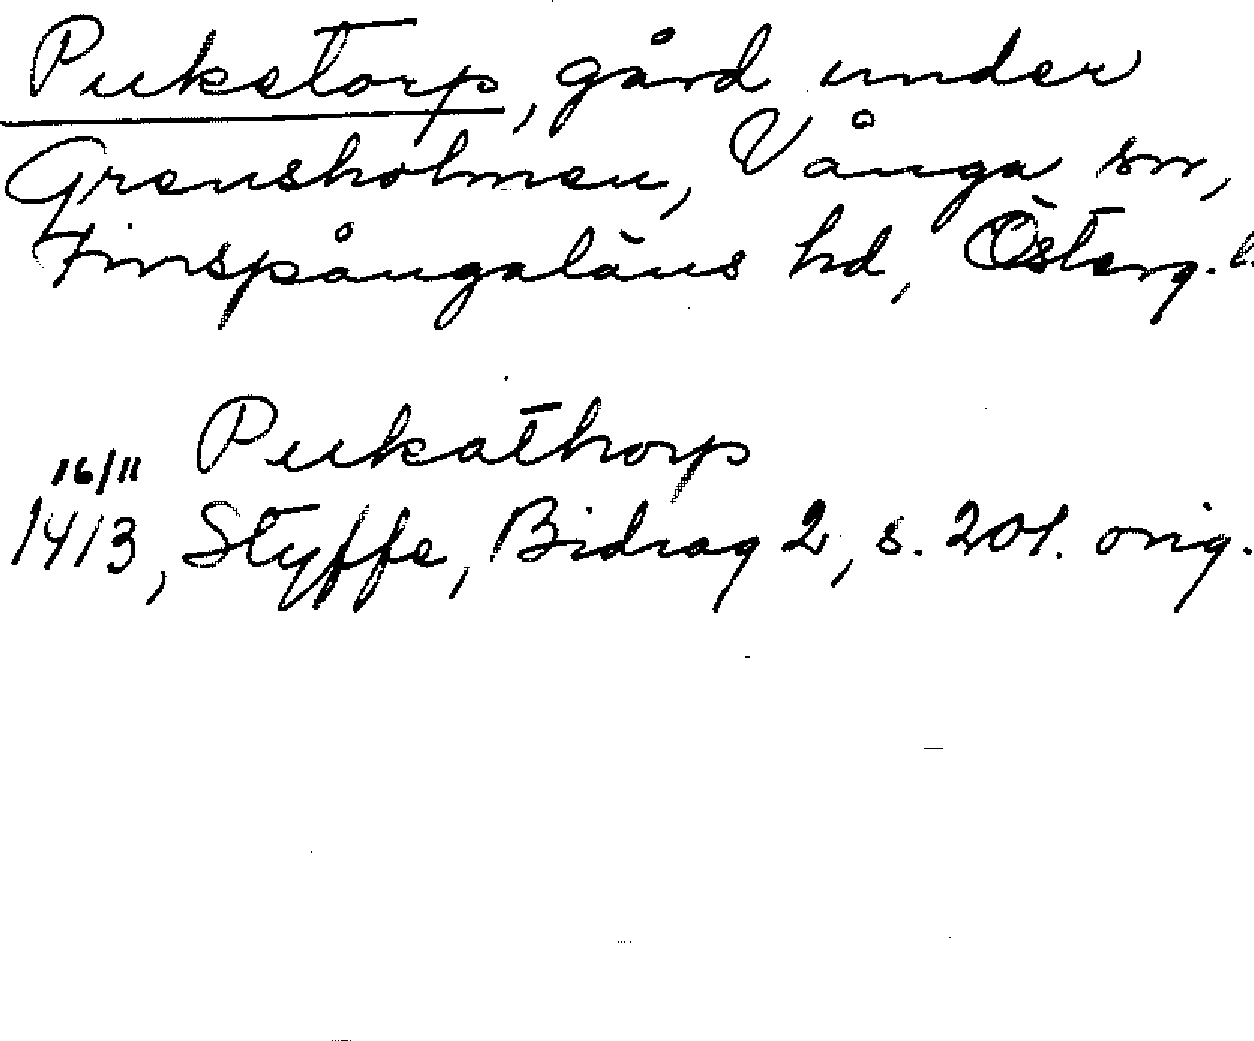 Pukstorp, gård under
Grensholmen, Vånga sn,
Finspångaläns hd, Österg. l.
Pukathorp
16/11
1413, Styffe, Bidrag 2, s. 201. orig.